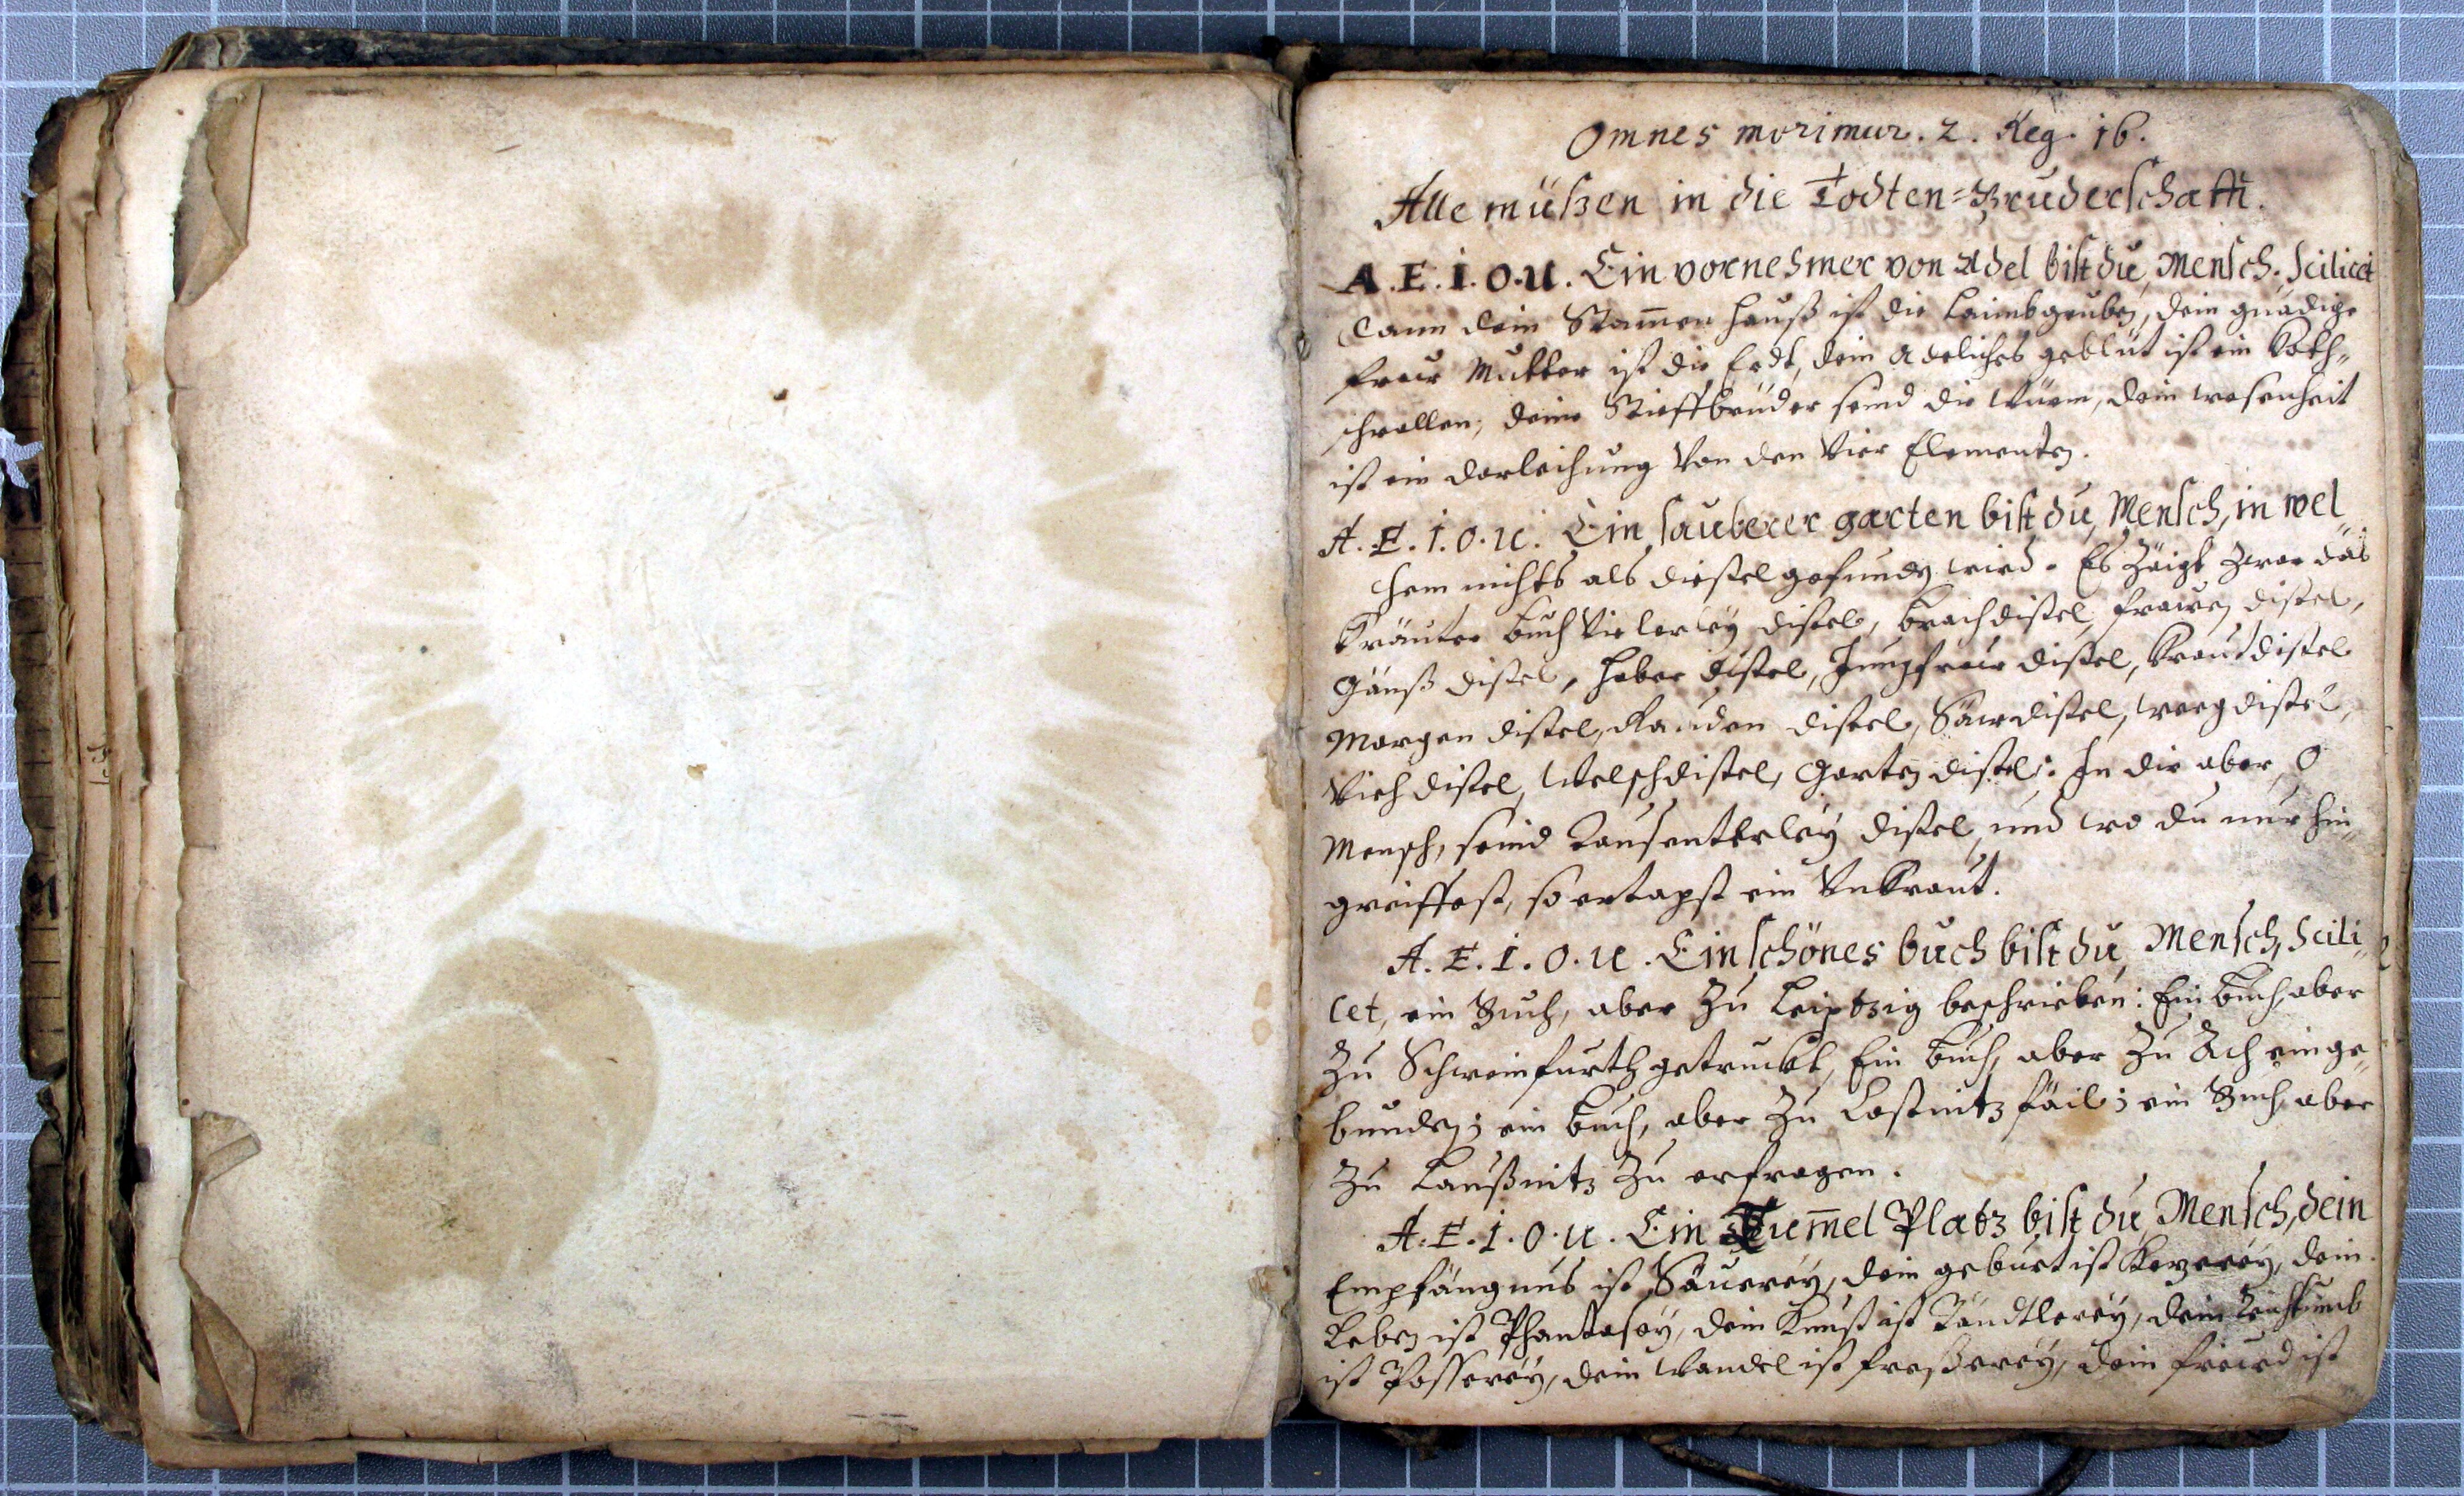 Omnes morimur. 2. Reg. 16.
Alle müßen in die Todten-Bruderschafft.
A.E.I.O.U. Ein vornehmer von Adel bist du, Mensch. Scilicet
dann dein Stam̄en Hauß ist die Laimbgruben, dein gnädige
fraw Mutter ist die Erdt, dein Adeliches geblüt ist ein Koth-
schrollen; deine Stieffbrüder seind die Würm, dein wesenheit
ist ein darleihung von den vier Elementen.
A.E.I.O.U. Ein sauberer garten bist du, Mensch, in wel-
chem nichts als diestel gefunden wird. Es zäigt zwar das
Kräuter buch vielerley distel, brachdistel, frawen distel,
Gänß distel, haber distel, Jungfraw distel, Krautdistel
Margen distel, Rauden distel, Sawdistel, weegdistel,
Viehdistel, Welschdistel, Garten distel: In dir aber, O
Mensch, seind Tausenterley distel, und wo du nur hin-
greiffest, so ertapst ein Unkraut.
A.E.I.O.U. Ein schönes buch bist du, Mensch, Scili-
cet, ein Buch, aber zu Leiptzig beschrieben: Ein buch, aber
zu Schweinfurth getruckt, Ein buch, aber zu Ach einge-
bunden; ein buch, aber zu Costnitz fäil; ein Buch, aber
zu Laußnitz zu erfragen.
A.E.I.O.U. Ein Tum̄el Platz bist du, Mensch, dein
Empfängnus ist Säuerey, dein geburt ist Kezerey, dein
Leben ist Phantasey, dein Kunst ist Tändtlerey, dein
ist Posserey, dein Wandel ist fresserey, dein freud ist